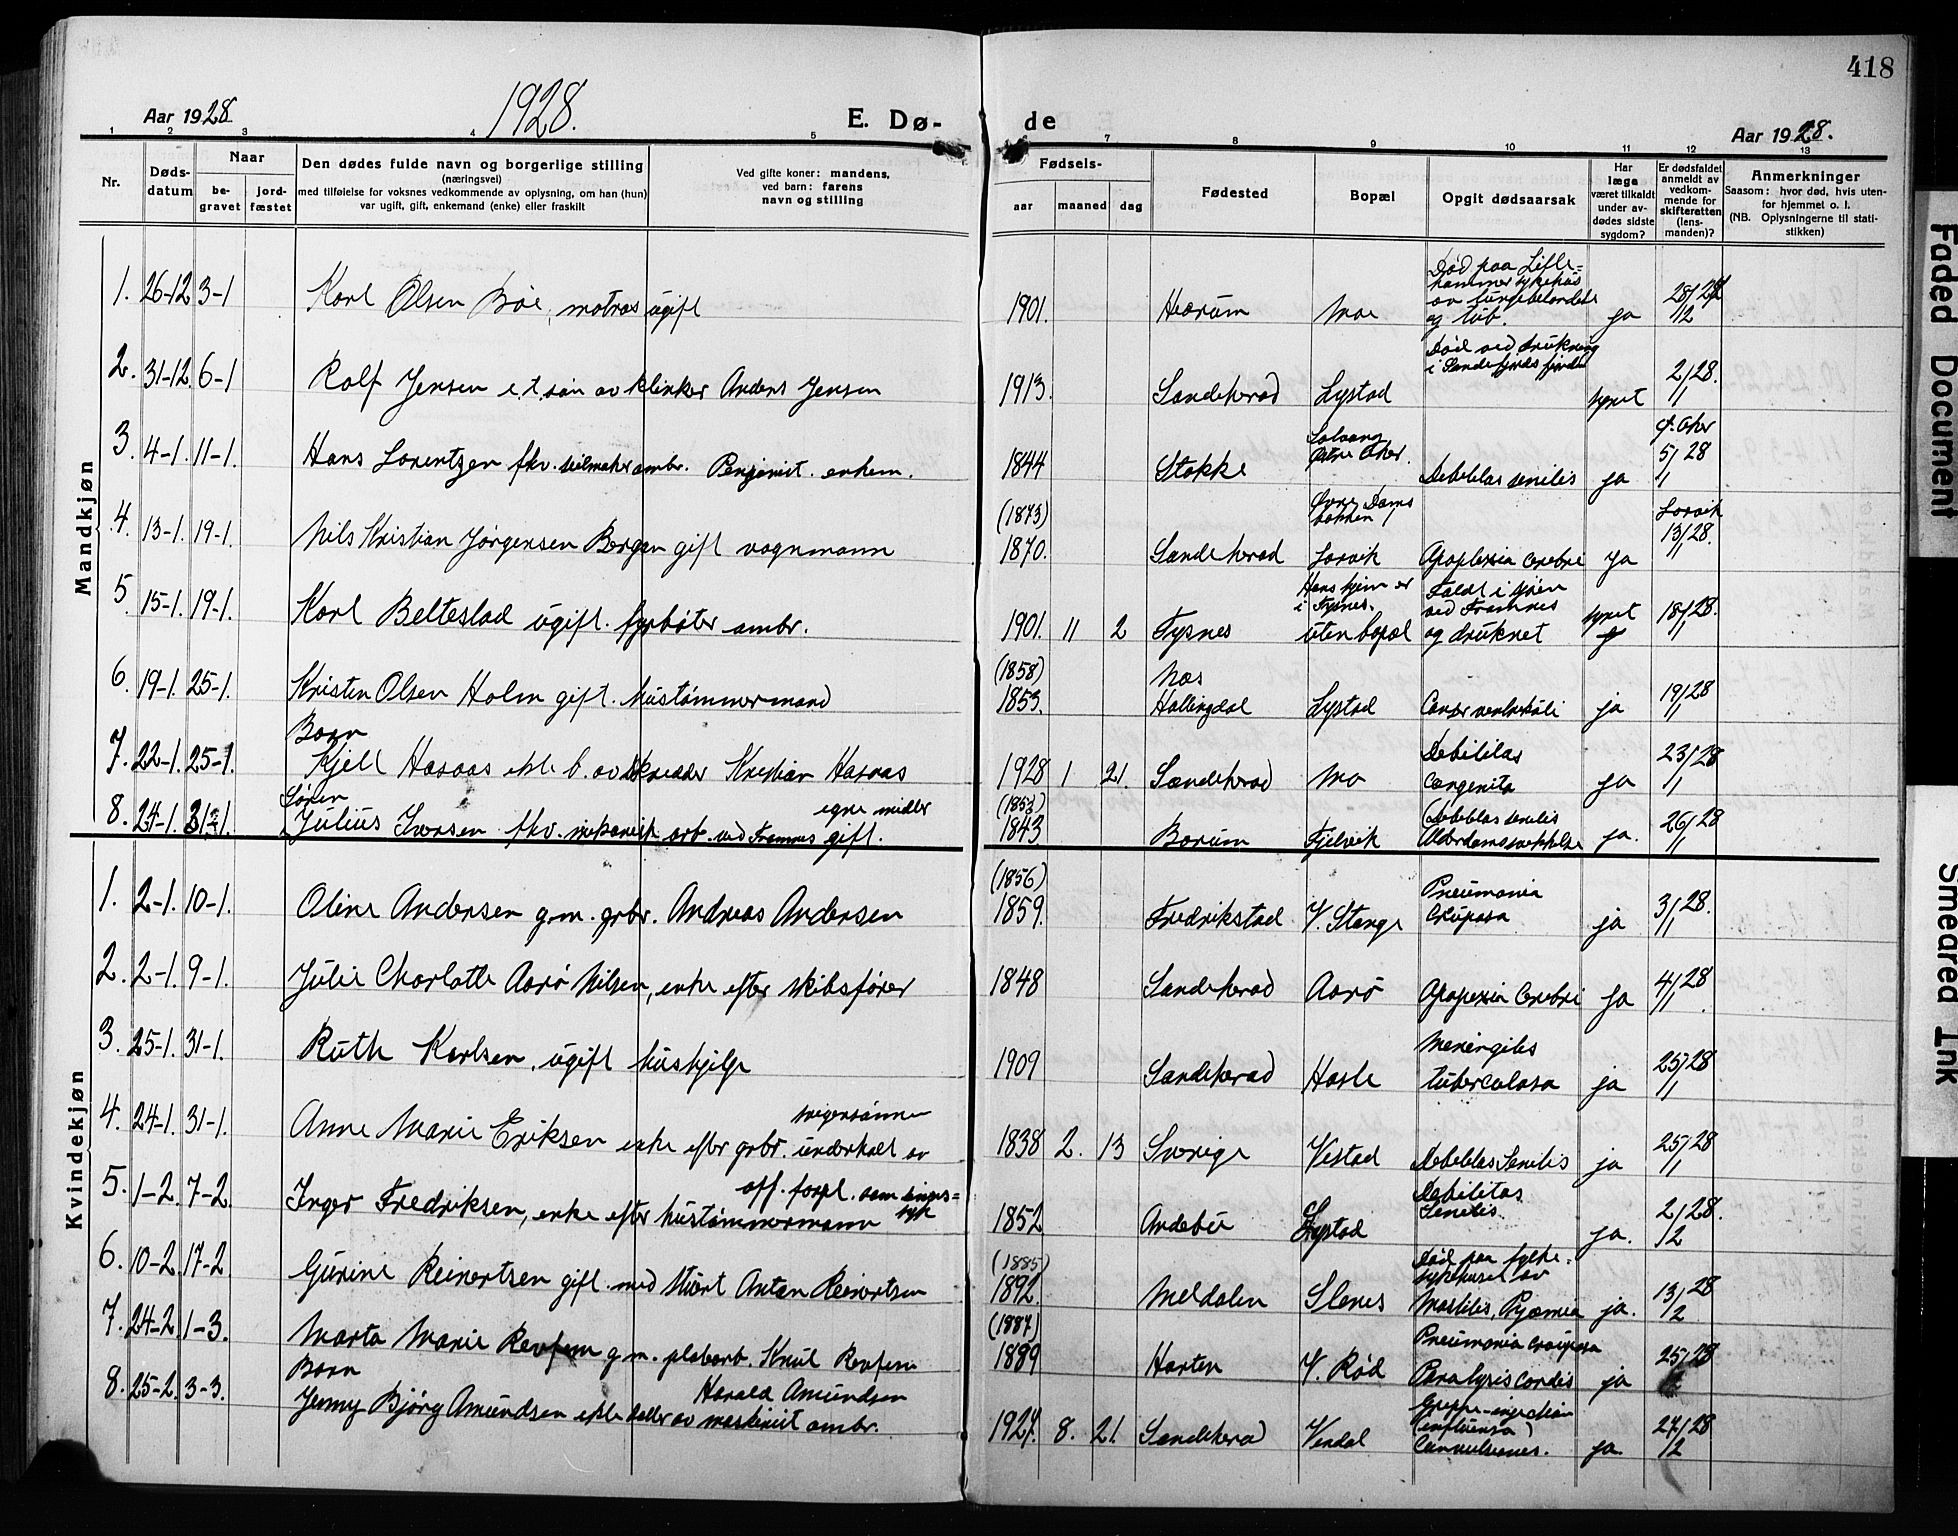 418
Aar 1928
1928.
E. Dø- de
Aar 1928.
1 2 3 4 5 7 8 9 10 11 12 13
Nr.
Døds-
datum
Naar
be-
gravet
jord-
fæstet
Den dødes fulde navn og borgerlige stilling
(næringsvei)
med tilføielse for voksnes vedkommende av oplysning, om han (hun)
var ugift, gift, enkemand (enke) eller fraskilt
Ved gifte koner: mandens,
ved barn: farens
navn og stilling
Fødsels-
aar maaned dag
Fødested
Bopæl
Opgit dødsaarsak
Har
læge
været tilkaldt
under av-
dødes sidste
sygdom?
Er dødsfaldet
anmeldt av
vedkom-
mende for
skifteretten
(lens-
manden)?
Anmerkninger
Saasom: hvor død, hvis uten-
for hjemmet o. l.
(NB. Oplysningerne til stati-
stikken)
Mandkjøn
1. 26-12 3-1 Karl Olsen Bøe, matros ugift 1901. Hærum Moe Død paa Lille-
hammer sykehus
av lungebetændelse
og tub. ja 28/12 27
2. 31-12 6-1 Rolf Jensen e.t. søn av klinker Anders Jensen 1913. Sandeherad Lystad Død ved drukning
i Sandefjords fjorden synet 2/1 28.
3. 4-1. 11-1. Hans Lorentzen fhv. seilmaker ambr. Pensionist. enkem. 1844 Stokke Solvang
Østre Aker. Debilitas senilis ja Ø. Aker
5/1 28
4. 13-1. 19-1. Nils Kristian Jørgensen Bergan gift vognmann (1873)
1870. Sandeherad Øvre Dams
bakken /
Larvik Apoplexia cerebri ja Larvik
13/1 28.
5. 15-1. 19-1. Karl Beltestad ugift. fyrbøter ambr. 1901. 11 2 Tysnes Hans hjem er
i Tysnes.
uten bopæl Faldt i sjøen
ved Framnes
og druknet synet 18/1 28.
6. 19-1. 25-1. Kristen Olsen Holm gift. hustømmermand (1858)
1853. Næs
Hallingdal Lystad Cancer ventriculi ja 19/1 28
7. 22-1. 25-1. Barn
Kjell Hasaas ekte b. av skredder Kristian Hasaas 1928 1 21. Sandeherad Mo Debilitas
congenita ja 23/1 28
8. 24-1. 31-1. Søren
Julius Iversen fhv. mekanisk arb. ved Framnes gift. egne midler (1853)
1843. Borum Fjelvik Debilitas senilis
Alderdomssvakhelse ja. 26/1 28
Kvindekjøn
1. 2-1. 10-1. Oline Andersen g.m. grbr. Andreas Andersen (1856)
1859. Fredrikstad V. Stange Pneumonia
crupøsa ja 3/1 28.
2. 2-1. 9-1. Julie Charlotte Aarø Nilsen, enke efter skibsfører 1848 Sandeherad Aarø Apoplexia cerebri ja 4/1 28.
3. 25-1. 31-1. Ruth Karlsen, ugift hushjelp 1909 Sandeherad Hasle Meningitis
tuberculosa ja 25/1 28
4. 24-1. 31-1. Anne Marie Eriksen enke efter grbr. underholt av svigersønnen 1838 2. 13 Sverige Vestad Debilitas Senilis ja 25/1 28
5. 1-2. 7-2. Inger Fredriksen, enke efter hustømmermann off. forpl. som sinds-
syk 1852 Andebu Lystad Debilitas
Senilis. ja. 2/2 28.
6. 10-2. 17-2 Gurine Reinertsen gift. med stuert Anton Reinertsen (1885)
1892. Meldalen Slenes Død paa fylke-
sykehuset av
Mastitis, Pyæmia ja. 13/2 28
7. 24-2. 1-3. Marta Marie Revfem g.m. platearb. Knut Revfem (1887)
1889 Horten V. Rød Pneumonia croupøsa
Paralysis cordis ja 25/2 28
8. 25-2. 3-3. Barn
Jenny Bjørg Amundsen ekte datter av maskinist ambr. Harald Amundsen 1927. 8. 21. Sandeherad Vindal Grippe-injection
(influensa)
Convulsiones. ja. 27/2 28
Faded Document
Smeared Ink